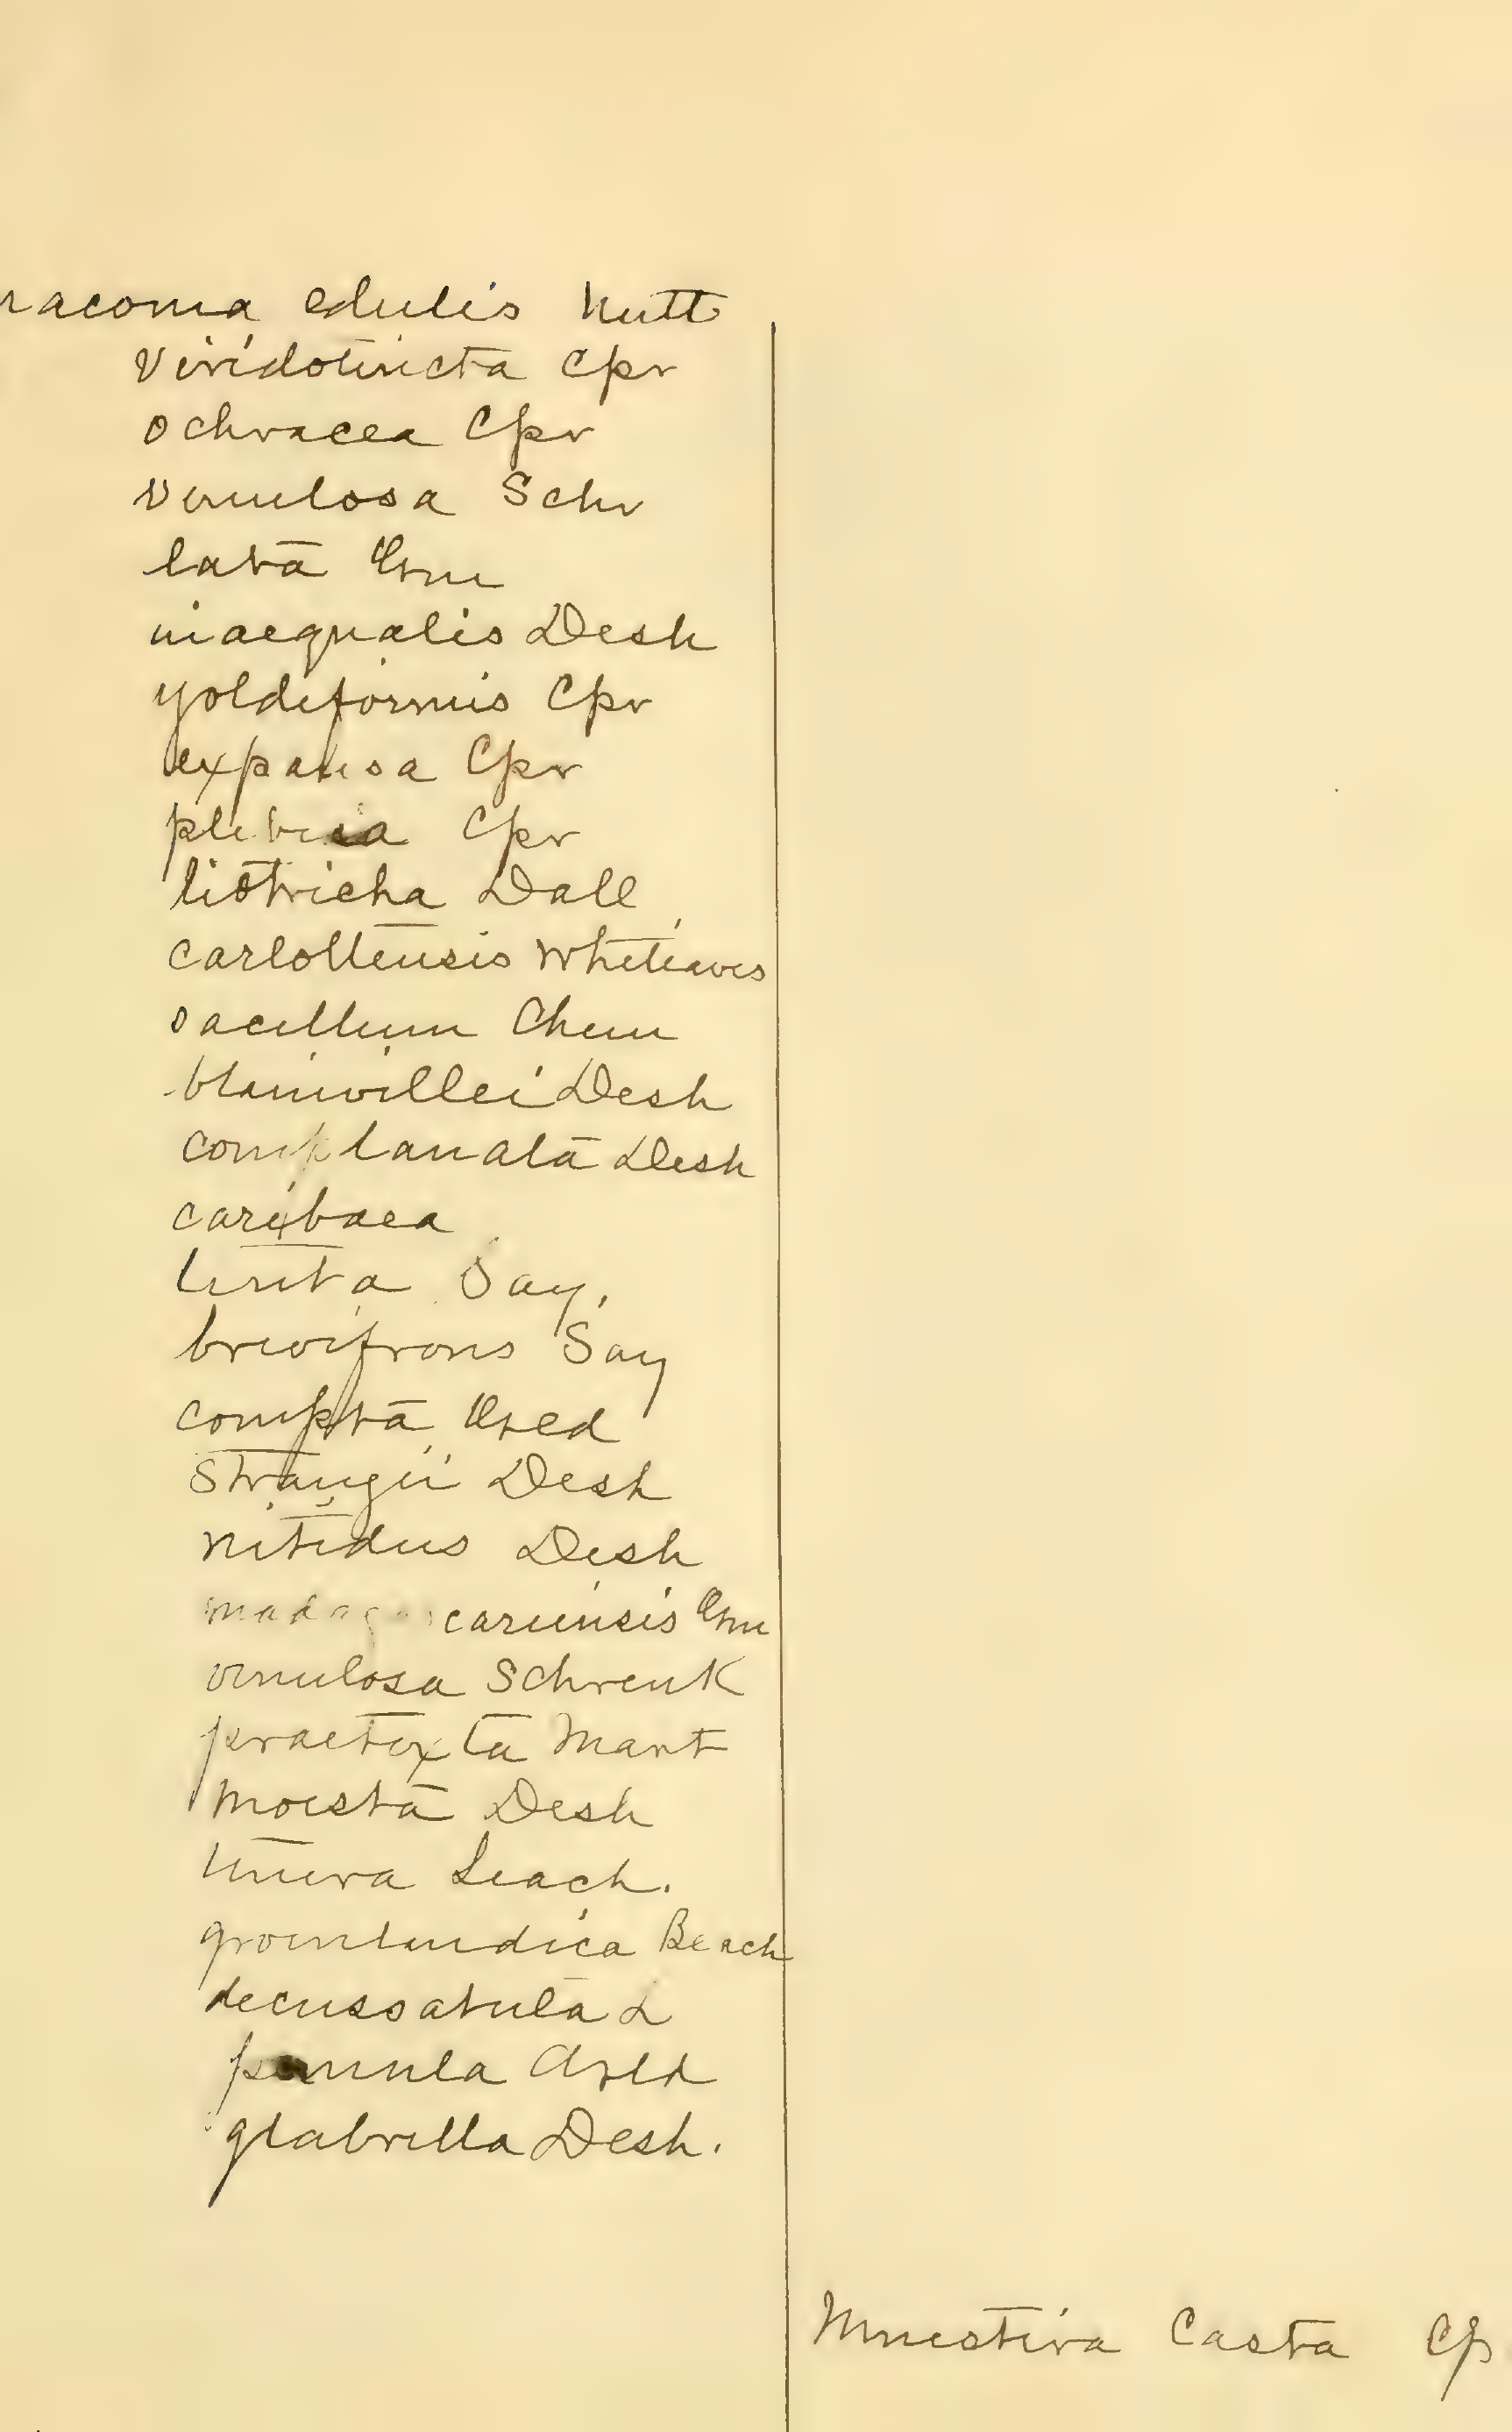 macoma edulis Nutt
viridotincta Cpr
ochracea Cpr
venulosa Schr
lata Gm
inaequalis Desh
yoldiformis Cpr
expansa Cpr
plebeia Cpr
liotricha Dall
carlottensis Whiteaves
sacellum Chem
blainvillei Desh
complanata Desh
caribaea
tenta Say,
brevifrons Say
compta Gld
Strangei Desh
nitidus Desh
madagascariensis Gm
venulosa Schrenk
praetexta Mart
moesta Desh
tenera Leach.
groenlandica Beach
decussatula L
pennula Desh
glabrella Desh.
casta Cp